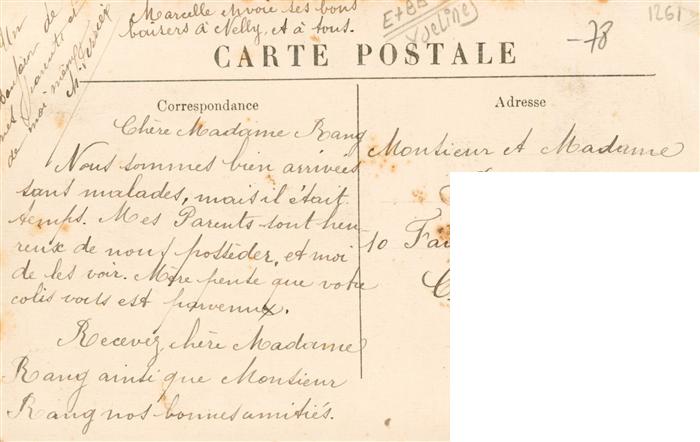 Marcelle envoie ses bons
baisers à Nelly, et à tous.
Un
de
mes Parents et
de moi-même
CARTE POSTALE
-78
1261
Correspondance
Adresse
Chère Madame Rang
Nous sommes bien arrivées
sans malades, mais il était
temps. Mes Parents sont heu-
reux de nous posséder, et moi
de les voir. Mère pense que votre
colis vous est parvenu.
Recevez, chère Madame
Rang ainsi que Monsieur
Rang nos bonnes amitiés.
Monsieur et Madame
10 Fau